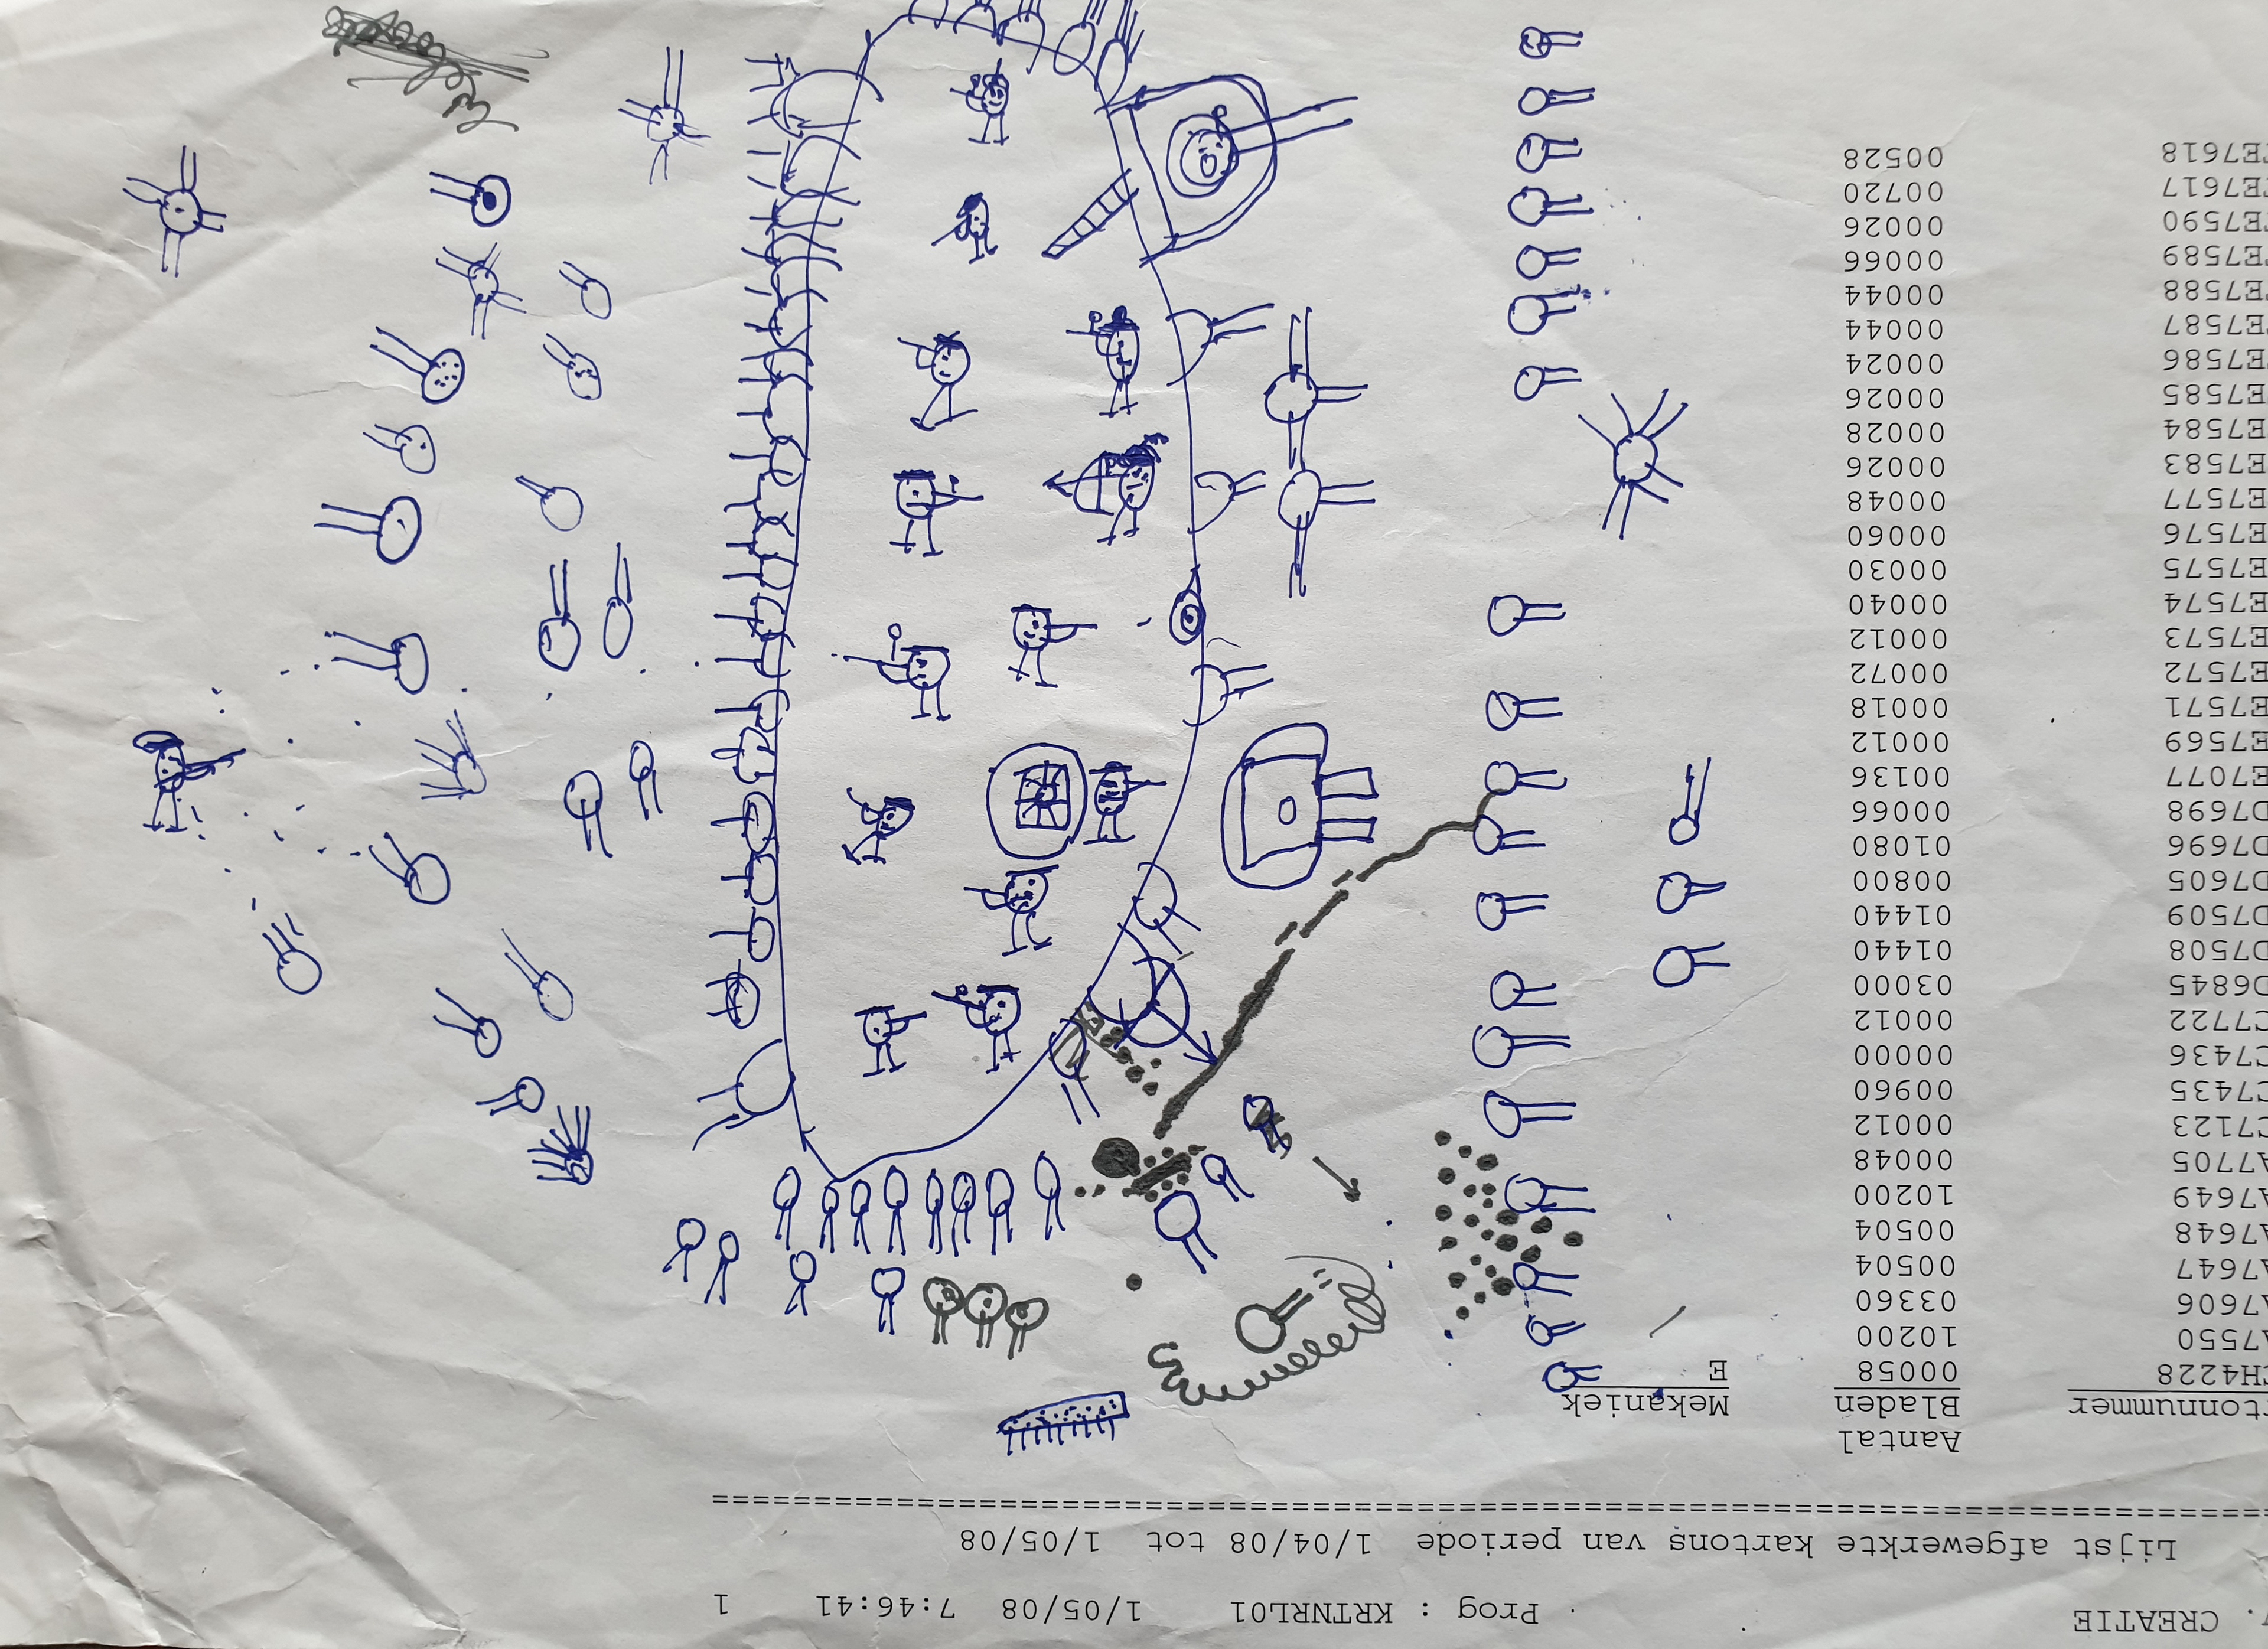 CREATIE Prog : KRTNRL01 1/05/08 7:46:41 1
Lijst afgewerkte kartons van periode 1/04/08 tot 1/05/08
Aantal
tonnummer Bladen Mekaniek
H4228 00058 E
A7550 10200
A7606 03360
A7647 00504
A7648 00504
A7649 10200
A7705 00048
C7123 00012
C7435 00960
C7436 00000
C7722 00012
D6845 03000
D7508 01440
D7509 01440
D7605 00800
D7696 01080
D7698 00066
E7077 00136
E7569 00012
E7571 00018
E7572 00072
E7573 00012
E7574 00040
E7575 00030
E7576 00060
E7577 00048
E7583 00026
E7584 00028
E7585 00026
E7586 00024
E7587 00044
E7588 00044
E7589 00066
E7590 00026
E7617 00720
E7618 00528